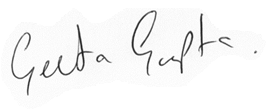 Geeta Gupta.